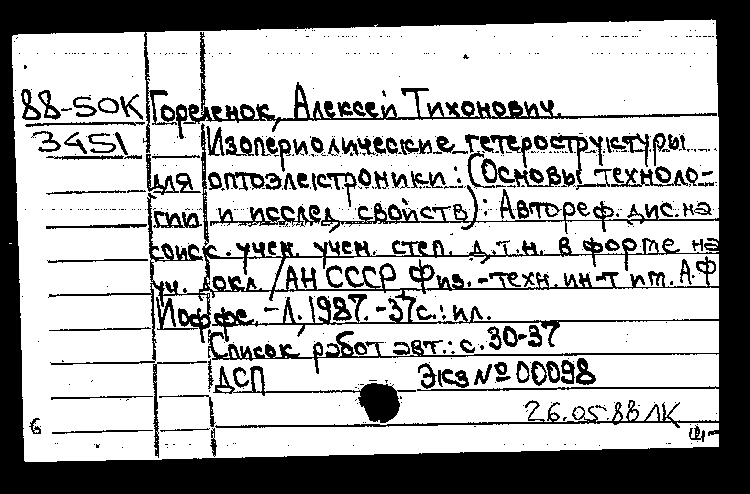 88-50К Гореленок, Алексей Тихонович.
3451 Изопериодические гетероструктуры
для оптоэлектроники: (Основы техноло-
гии и исслед. свойств): Автореф. дис. на
соиск. учен. учен. степ. д.т.н. в форме на
уч. докл. /АН СССР, Физ.-техн. ин-т им. А.Ф
Иоффе. -Л., 1987. -37с.: ил.
Список работ авт.: с. 30-37
ДСП Экз № 00098
26.05 88 ЛК
6